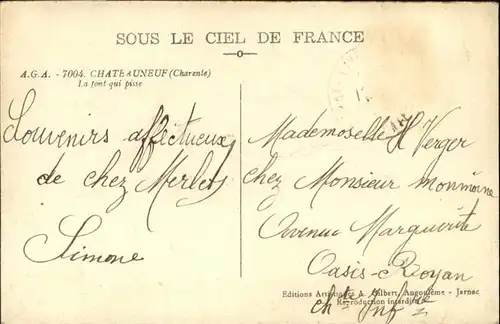 SOUS LE CIEL DE FRANCE
A.G.A. - 7004. CHATEAUNEUF (Charente)
La font qui pisse
Souvenirs affectueux
de chez Merlet
Simone
Mademoselle H Verger
chez Monsieur monmoine
Avenue Marguerite
Oasis-Royan
chte Infre
Editions Artistiques A. Gilbert, Angoulême - Jarnac
Reproduction interdite